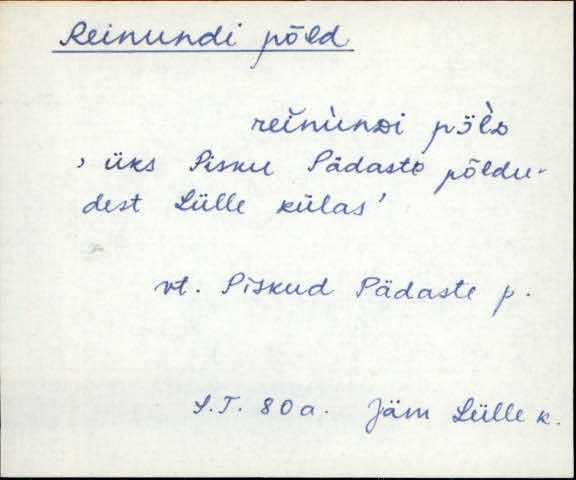 Reinundi põld
reinùnᴅi pə̈̀lᴅ
, üks Pisku Pädaste põldu-
dest Lülle külas'
vt. Piskud Pädaste p.
S.T. 80a. Jäm Lülle k.